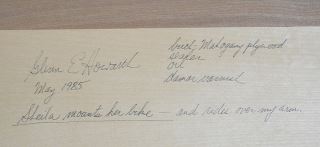 Glenn E Howarth
May 1985
birch-Mahogany plywood
sealer
oil
damar varnish
Sheila mounts her bike — and rides over my arm.